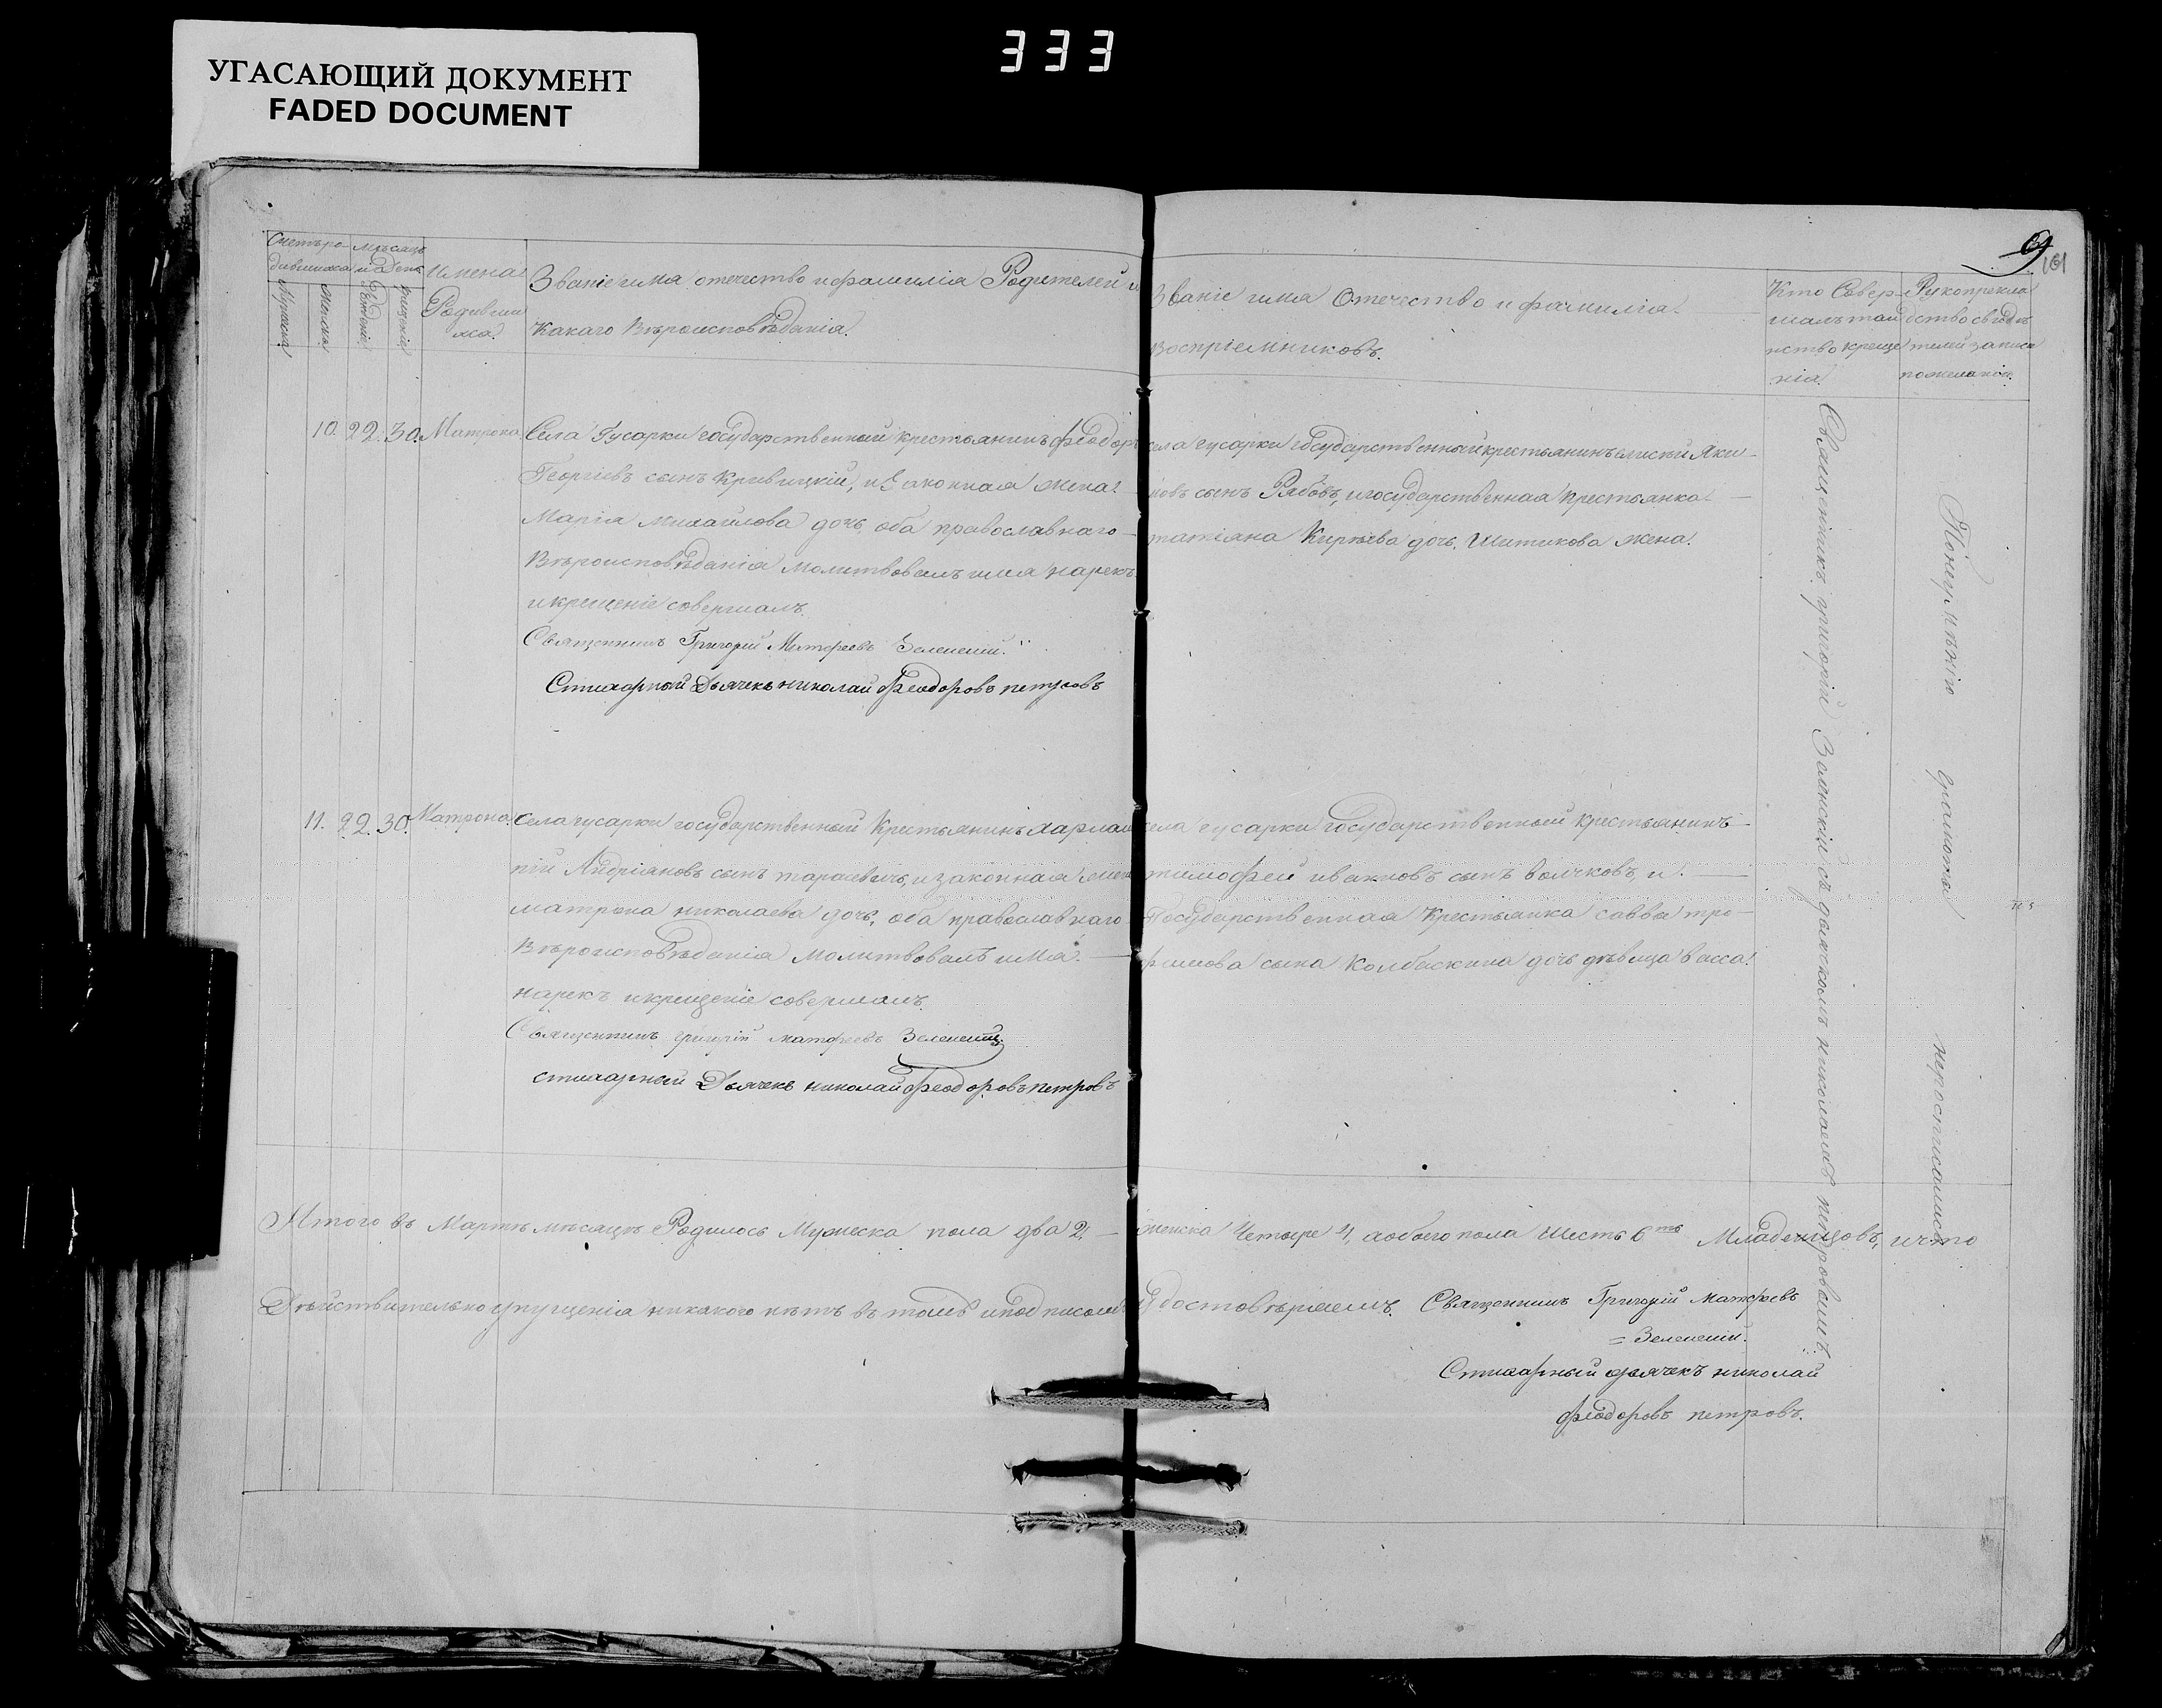 333
УГАСАЮЩИЙ ДОКУМЕНТ
FADED DOCUMENT
9
161
Счетъ ро-
дившихся
Мужска
Женска
Мѣсяцъ
и День
Рожденія
Крещенія
Имена
Родивши
хся.
Званіе имя отечество и фамилія Родителей и
Какаго Вѣроисповѣданія.
Званіе имя Отечество и фамилія
Воспріемниковъ.
Кто Совер-
шалъ таи
нство креще
нія.
Рукоприкла
дство свѣдѣ
телей записи
по желанію.
10. 22. 30. Матрона.
Села Гусарки государственный крестьянинъ феодоръ
Георгіевъ сынъ Кривицкій, и Законная жена
Марія Михайлова дочь, оба православнаго
Вѣроисповѣданія молитвовалъ имя нарекъ
и крещеніе совершалъ.
Священникъ Григорій Матфеевъ Зеленскій.
Стихарный Дьячекъ николай феодоровъ петровъ
села гусарки государственный крестьянинъ Яки-
мовъ сынъ Рябовъ, и государственная крестьянка
татіяна Киріева дочь, Шитикова жена.
11. 22. 30. Матрона.
села гусарки государственный Крестьянинъ хар
пій Андріяновъ сынъ тарасевичъ, и законная жен
матрона николаева дочь, оба православнаго
Вѣроисповѣданія молитвовалъ имя
нарекъ и крещеніе совершалъ.
Священникъ григорій матфеевъ Зеленскій.
стихарный Дьячекъ николай феодоровъ петровъ
села гусарки государственный крестьянинъ
тимофей ивановъ сынъ волчковъ, и
Государственная Крестьянка савва тро-
фимова сына Колбаскина дочь дѣвица васса.
Священникъ григорій Зеленскій съ дьячкомъ николаемъ петровымъ.
По неумѣнію грамоты неросписались
Итого въ Мартѣ мѣсяцѣ Родилось Мужеска пола два 2. женска Четыре 4, а обоего пола Шесть 6ть Младенцовъ, и что
Дѣйствительно упущенія никакого нѣтъ въ томъ и подписомъ Удостовѣряемъ. Священникъ Григорій Матфеевъ
= Зеленскій.
Стихарный дьячекъ николай
феодоровъ петровъ.